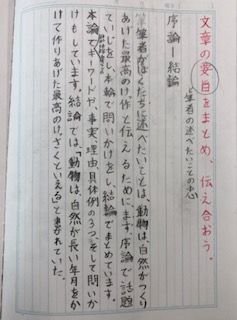 文章の要旨をまとめ、伝え合おう。
筆者の述べたいことの中心
序論ー結論
筆者がぼくたちに述べたいことは、動物は、自然がつくり
あげた最高のけっ作と伝えるために、まず、序論で話題
ていじをし、本論で問いかけをし、結論でまとめています。
本論でキーワードや、事実、理由、具体例の3つ、そして問いか
けもしています。結論では、「動物は、自然が長い年月をか
けて作りあげた最高のけっさくといえる」と書かれていた。